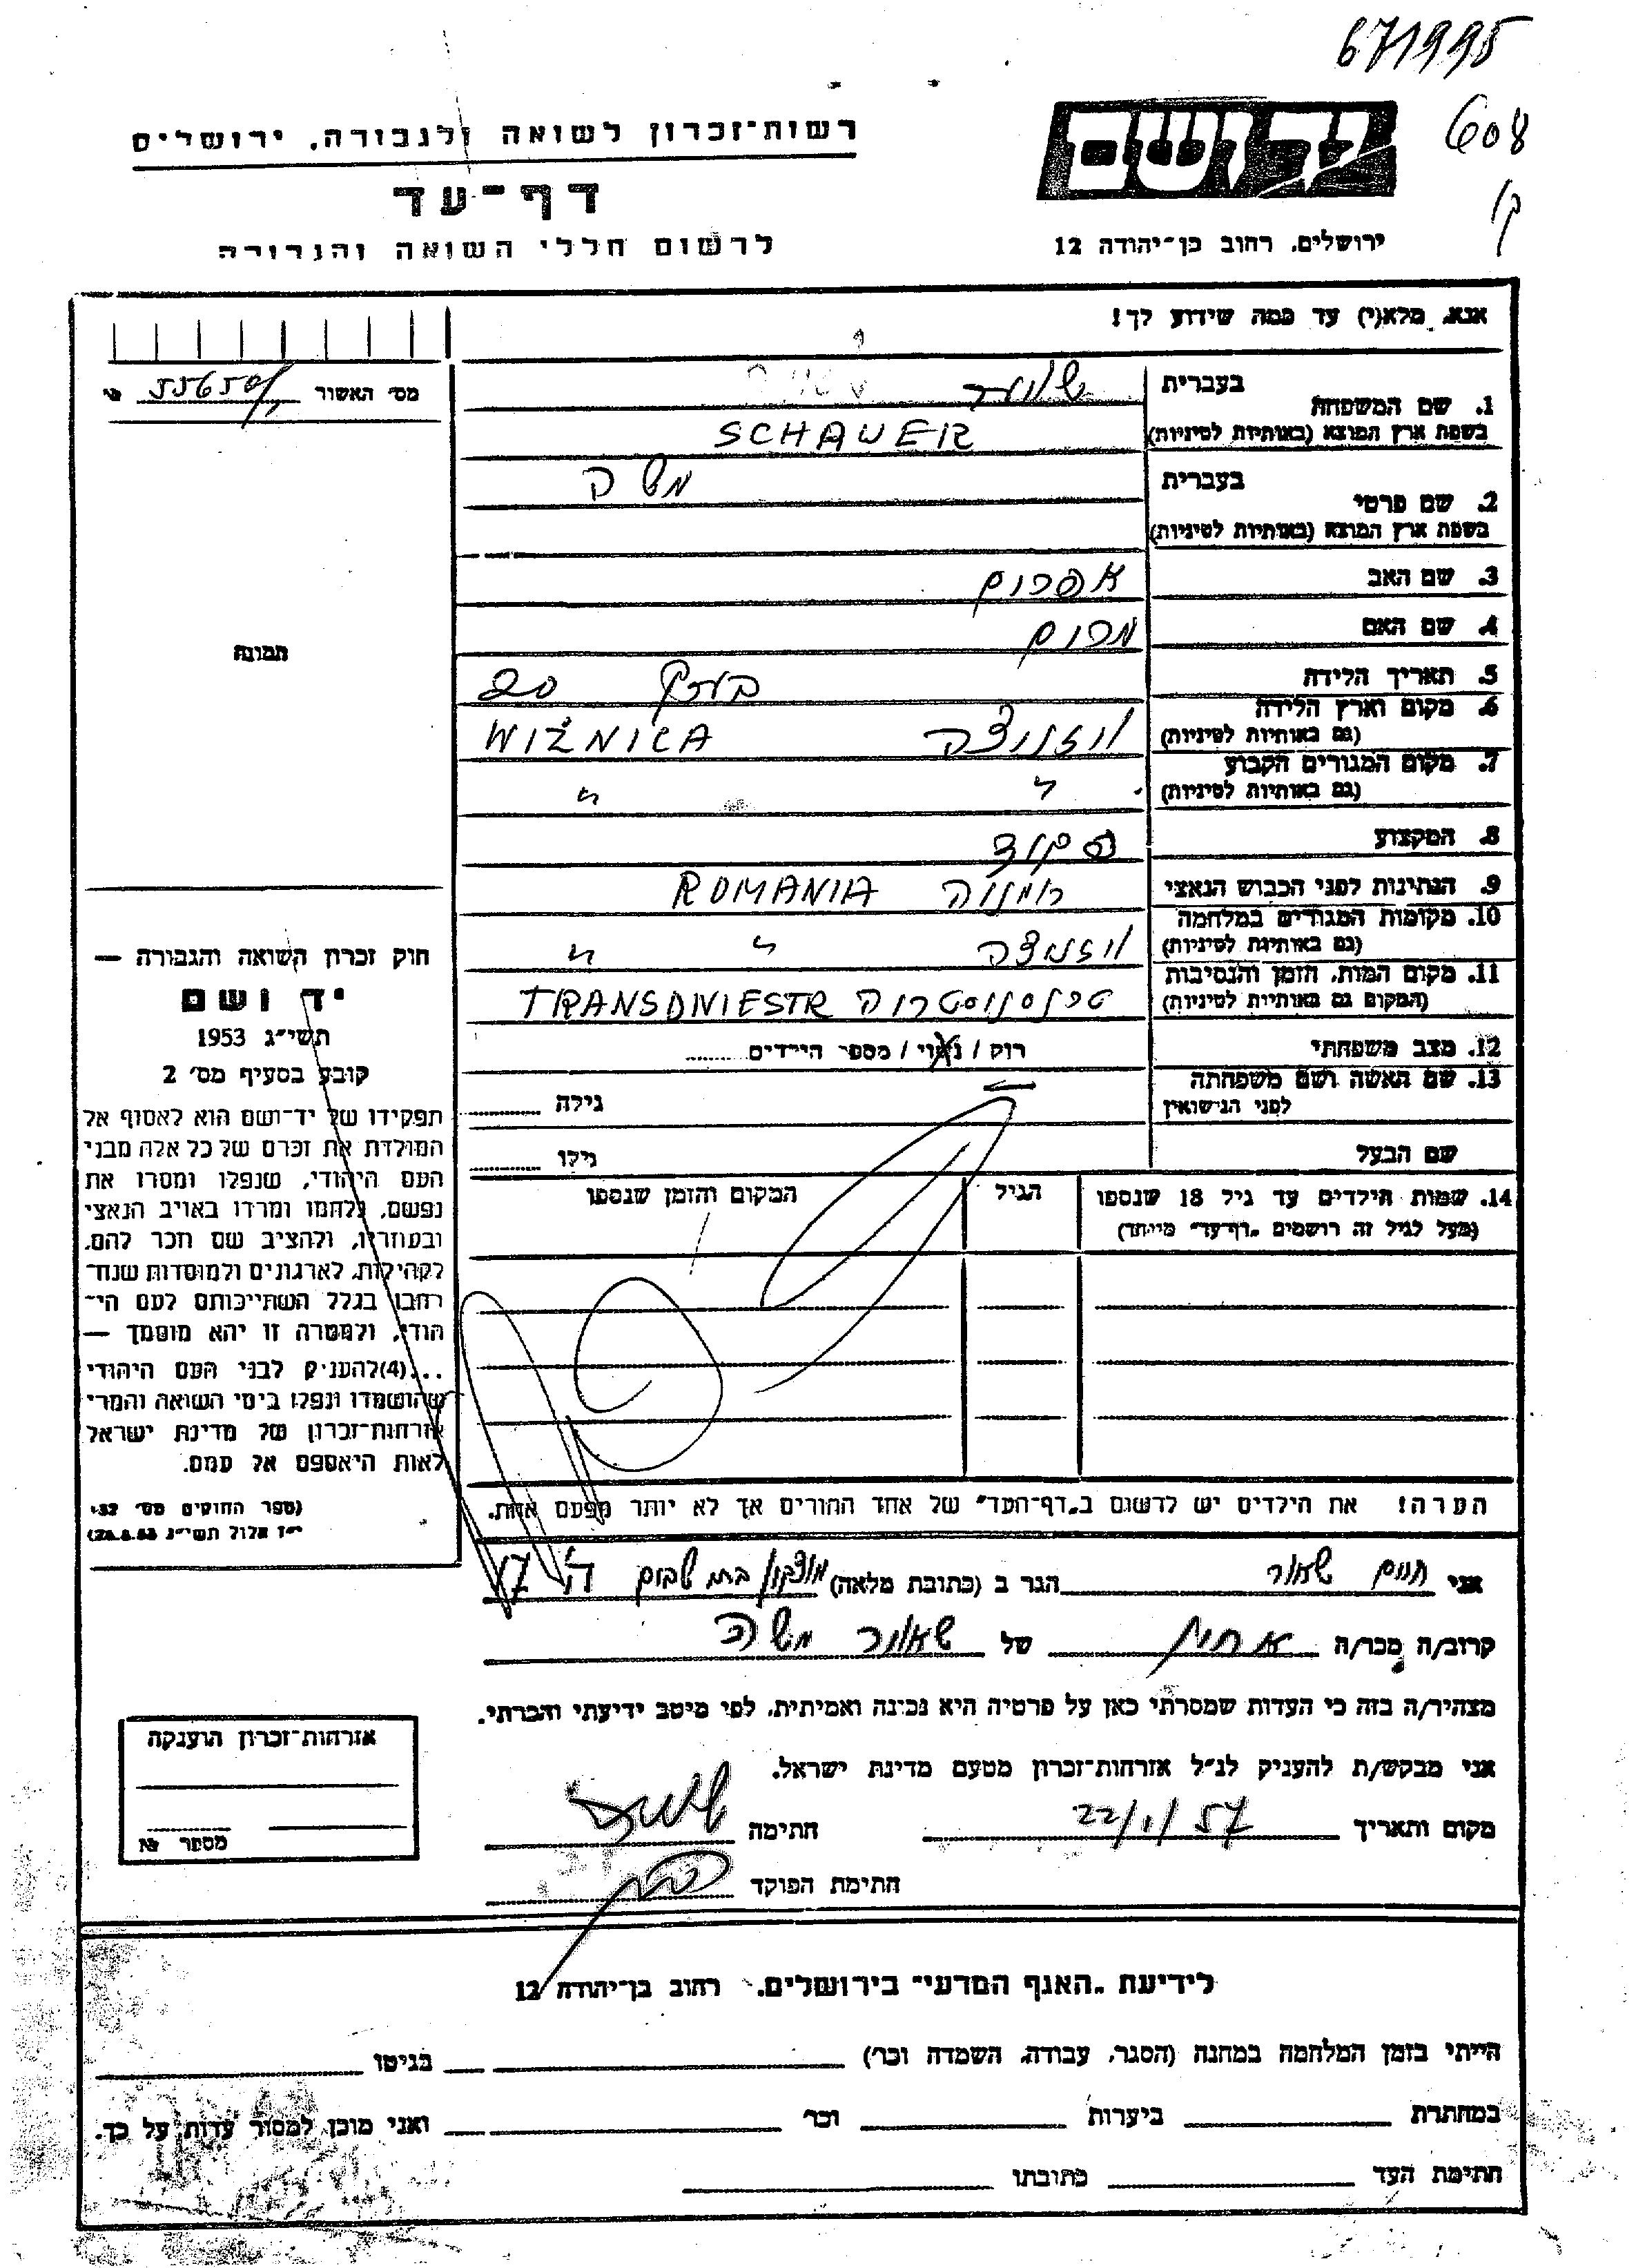 671995
608
רשות־זכרון לשואה ולגבורה, ירושלים
יד ושם
דף־עד
לרשום חללי השואה והגבורה
ירושלים, רחוב בן־יהודה 12
אנא, מלא(י) עד כמה שידוע לך!
מס׳ האשור
1. שם המשפחה
בעברית שאוער
בשפת ארץ המוצא (באותיות לטיניות) SCHAUER
2. שם פרטי
בעברית משה
בשפת ארץ המוצא (באותיות לטיניות)
3. שם האב אפרים
4. שם האם מרים
תמונה
5. תאריך הלידה בערך 20
6. מקום וארץ הלידה
(גם באותיות לטיניות) ויזניצה WIŽNICA
7. מקום המגורים הקבוע
(גם באותיות לטיניות) " "
8. המקצוע פקיד
9. הנתינות לפני הכבוש הנאצי רומניה ROMANIA
10. מקומות המגורים במלחמה
(גם באותיות לטיניות) ויזניצה " "
11. מקום המות, הזמן והנסיבות
(המקום גם באותיות לטיניות) טרנסניסטריה TRANSDNIESTR
12. מצב משפחתי רווק / נשוי / מספר הילדים
13. שם האשה ושם משפחתה
לפני הנישואין גילה
שם הבעל גילו
14. שמות הילדים עד גיל 18 שנספו הגיל המקום והזמן שנספו
(מעל לגיל זה רושמים „דף־עד" מיוחד)
חוק זכרון השואה והגבורה —
יד ושם
תשי״ג 1953
קובע בסעיף מס׳ 2
תפקידו של יד־ושם הוא לאסוף אל
המולדת את זכרם של כל אלה מבני
העם היהודי, שנפלו ומסרו את
נפשם, נלחמו ומרדו באויב הנאצי
ובעוזריו, ולהציב שם וזכר להם,
לקהילות, לארגונים ולמוסדות שנח־
רבו בגלל השתייכותם לעם הי־
הודי, ולמטרה זו יהא מוסמך —
...(4)להעניק לבני העם היהודי
שהושמדו ונפלו בימי השואה והמרי
אזרחות־זכרון של מדינת ישראל
לאות היאספם אל עמם.
(ספר החוקים מס׳ 132
הערה! את הילדים יש לרשום ב„דף־העד" של אחד ההורים אך לא יותר מפעם אחת.
אני חיים שאוער הגר ב (כתובת מלאה)
קרוב/ה מכר/ה אחיו של שאוער משה
מצהיר/ה בזה כי העדות שמסרתי כאן על פרטיה היא נכונה ואמיתית, לפי מיטב ידיעתי והכרתי.
אני מבקש/ת להעניק לנ״ל אזרחות־זכרון מטעם מדינת ישראל.
מקום ותאריך 22/1/57 חתימה
חתימת הפוקד
אזרחות־זכרון הוענקה
מספר №
לידיעת „האגף המדעי" בירושלים, רחוב בן־יהודה 12
הייתי בזמן המלחמה במחנה (הסגר, עבודה, השמדה וכר) בגיטו
במחתרת ביערות וכר ואני מוכן למסור עדות על כך.
חתימת העד כתובתו